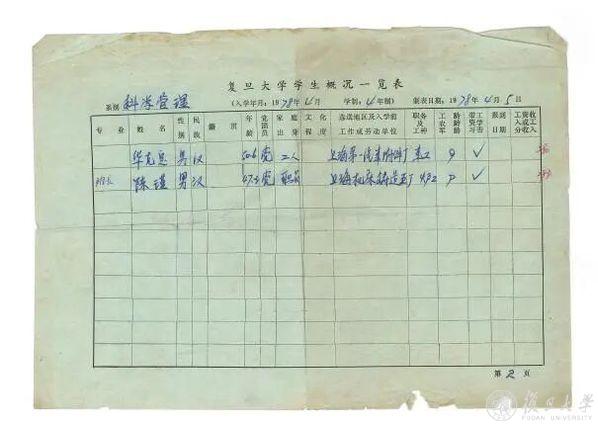 复旦大学学生概况一览表
系别 科学管理 (入学年月：1978年4月 学制：4年制) 制表日期：1978年4月5日
专业 姓名 性别 民族 籍贯 年龄 党团员 家庭出身 文化程度 选送地区及入学前工作或劳动单位 职务及工种 工农军龄 龄龄龄 带工资学习否 报到日期 工资收入或工分收入
男 汉 50.6 党 工人 上海第一 9 ✓
陈瑾 男 汉 47.3 党 职员 上海机床铸造五厂 ✓
第2页
復旦大學
FUDAN UNIVERSITY